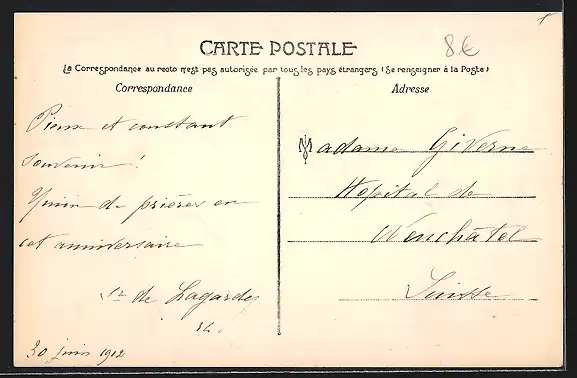 8€
CARTE POSTALE
La Correspondance au recto n'est pas autorisée par tous les pays étrangers (Se renseigner à la Poste)
Correspondance
Adresse
Pieux et constant
souvenir !
Union de prières en
cet anniversaire
Sr de Lagardes
30 juin 1912
Madame Giverne
Hopital de
Neuchâtel
Suisse